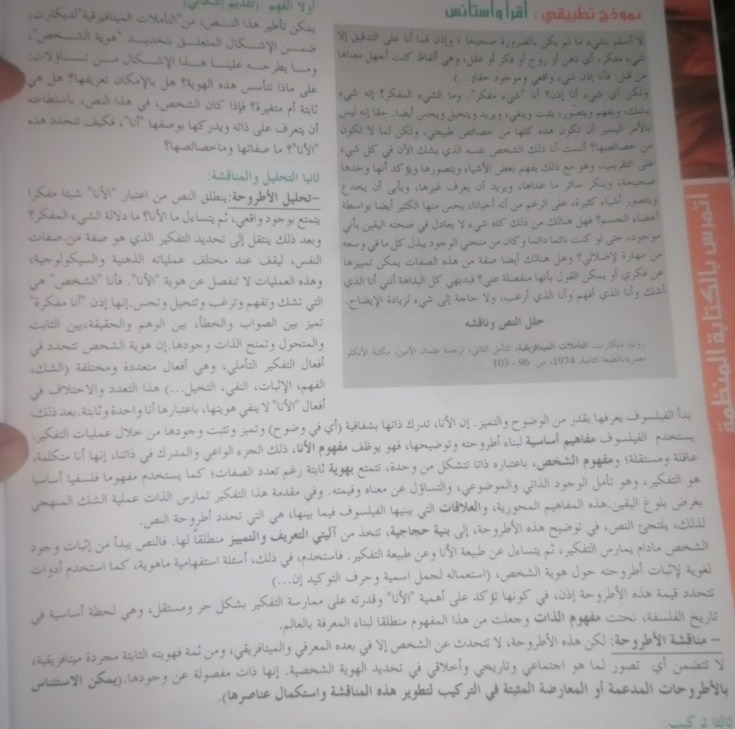 نموذج تطبيقي : أقرأ وأستأنس
لا أسلم بشيء ما لم يكن بالضرورة صحيحا ؛ وإذن فما أنا على التدقيق إلا
شيء مفكر، أي ذهن أو روح أو فكر أو عقل، وهي ألفاظ كنت أجهل معناها
من قبل: فأنا إذن شيء واقعي وموجود حقا(...).
ولكن أي شيء أنا إذن؟ أنا "شيء مفكر". وما الشيء المفكر؟ إنه شيء
يشك، ويفهم ويتصور، يثبت وينفي، ويريد ويتخيل ويحس أيضا. حقا إنه ليس
بالأمر اليسير أن تكون هذه كلها من خصائص طبيعتي، ولكن لما لا تكون
من خصائصها؟ ألست أنا ذلك الشخص نفسه الذي يشك الآن في كل شيء
على التقريب، وهو مع ذلك يفهم بعض الأشياء ويتصورها ويؤكد أنها وحدها
صحيحة، وينكر سائر ما عداها، ويريد أن يعرف غيرها، ويأبى أن يخدع
ويتصور أشياء كثيرة، على الرغم من أنه أحيانا، يحس منها الكثير أيضا بواسطة
أعضاء الجسم؟ فهل هنالك من ذلك كله شيء لا يعادل في صحته اليقين بأني
موجود، حتى لو كنت نائما دائما وكان من منحني الوجود يبذل كل ما في وسعه
من مهارة لإضلالي؟ وهل هنالك أيضا صفة من هذه الصفات يمكن تمييزها
عن فكري أو يمكن القول بأنها منفصلة عني؟ فبديهي كل البداهة أنني أنا الذي
أشك وأنا الذي أفهم وأنا الذي أرغب، ولا حاجة إلى شيء لزيادة الإيضاح.
حلل النص وناقشه
رونيه ديكارت، التأملات الميتافيزيقية، التأمل الثاني، ترجمة عثمان الأمين، مكتبة الأنجلو
مصرية،الطبعة الثانية، 1974، ص: 96 - 103
أتمرس بالكتابة المنظمة
أولا الفهم :(تقديم إشكالي)
يمكن تأطير هذا النص، من"التأملات الميتافيزقية"لديكارت،
ضمن الإشكال المتعلق بتحديد "هوية الشخص"،
وما يطرحه علينا هذا الإشكال من تساؤلات:
على ماذا تتأسس هذه الهوية؟ هل بالإمكان تعريفها؟ هل هي
ثابتة أم متغيرة؟ فإذا كان الشخص، في هذا النص، باستطاعته
أن يتعرف على ذاته ويدركها بوصفها "أنا"، فكيف تتحدد هذه
"الأنا"؟ ما صفاتها وماخصائصها؟
ثانيا التحليل والمناقشة:
–تحليل الأطروحة:ينطلق النص من اعتبار "الأنا" شيئا مفكرا
يتمتع بوجود واقعي، ثم يتساءل ما الأنا؟ ما دلالة الشيء المفكر؟
وبعد ذلك ينتقل إلى تحديد التفكير الذي هو صفة من صفات
النفس، ليقف عند مختلف عملياته الذهنية والسيكولوجية،
وهذه العمليات لا تنفصل عن هوية "الأنا". فأنا "الشخص" هي
التي تشك وتفهم وترغب وتتخيل وتحس.إنها إذن "أنا مفكرة"
تميز بين الصواب والخطأ، بين الوهم والحقيقة،بين الثابت
والمتحول وتمنح الذات وجودها.إن هوية الشخص تتحدد في
أفعال التفكير التأملي، وهي أفعال متعددة ومختلفة (الشك،
الفهم، الإثبات، النفي، التخيل...) هذا التعدد والاختلاف في
أفعال "الأنا" لا ينفي هويتها، باعتبارها أنا واحدة وثابتة.بعد ذلك،
بدأ الفيلسوف يعرفها بقدر من الوضوح والتميز. إن الأنا، تدرك ذاتها بشفافية (أي في وضوح) وتميز وتثبت وجودها من خلال عمليات التفكير.
يستخدم الفيلسوف مفاهيم أساسية لبناء أطروحته وتوضيحها، فهو يوظف مفهوم الأنا، ذلك الجزء الواعي والمدرك في ذاتنا، إنها أنا متكلمة،
عاقلة ومستقلة؛ ومفهوم الشخص، باعتباره ذاتا تتشكل من وحدة، تتمتع بهوية ثابتة رغم تعدد الصفات؛ كما يستخدم مفهوما فلسفيا أساسيا
هو التفكير، وهو تأمل الوجود الذاتي والموضوعي، والتساؤل عن معناه وقيمته. وفي مقدمة هذا التفكير تمارس الذات عملية الشك المنهجي
بغرض بلوغ اليقين.هذه المفاهيم المحورية، والعلاقات التي يبنيها الفيلسوف فيما بينها، هي التي تحدد أطروحة النص.
لذلك، يلتجئ النص، في توضيح هذه الأطروحة، إلى بنية حجاجية، تتخذ من آليتي التعريف والتمييز منطلقا لها. فالنص يبدأ من إثبات وجود
الشخص مادام يمارس التفكير، ثم يتساءل عن طبيعة الأنا وعن طبيعة التفكير. فاستخدم، في ذلك، أسئلة استفهامية ماهوية، كما استخدم أدوات
لغوية لإثبات أطروحته حول هوية الشخص، (استعماله لجمل اسمية وحرف التوكيد إن...)
تتحدد قيمة هذه الأطروحة إذن، في كونها تؤكد على أهمية "الأنا" وقدرته على ممارسة التفكير بشكل حر ومستقل، وهي لحظة أساسية في
تاريخ الفلسفة، نحتت مفهوم الذات وجعلت من هذا المفهوم منطلقا لبناء المعرفة بالعالم.
– مناقشة الأطروحة: لكن هذه الأطروحة، لا تتحدث عن الشخص إلا في بعده المعرفي والميتافيزيقي، ومن ثمة فهويته الثابتة مجردة ميتافيزيقية،
لا تتضمن أي تصور لما هو اجتماعي وتاريخي وأخلاقي في تحديد الهوية الشخصية. إنها ذات مفصولة عن وجودها.(يمكن الاستئناس
بالأطروحات المدعمة أو المعارضة المثبتة في التركيب لتطوير هذه المناقشة واستكمال عناصرها).
ثالثا تركيب: